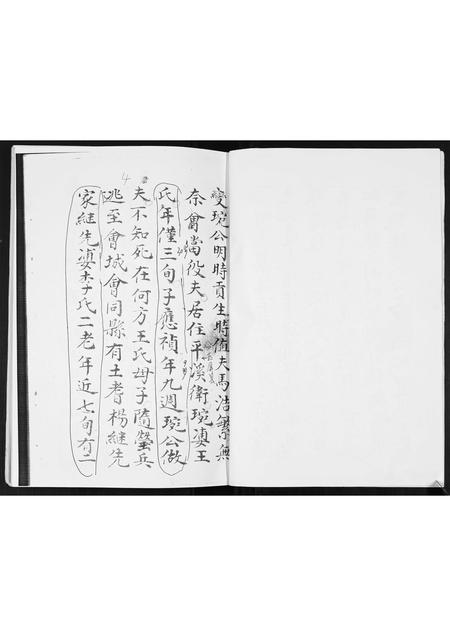 變琬公明時貢生時值夫馬浩繁無
奈當當役夫居住平溪衛琬娶王
氏年僅三旬子應禎年九週琬公做
夫不知死在何方王氏母子隨蠻兵
逃至會城會同縣有土耆楊繼先
家継先娶李氏二老年近七旬有二
4